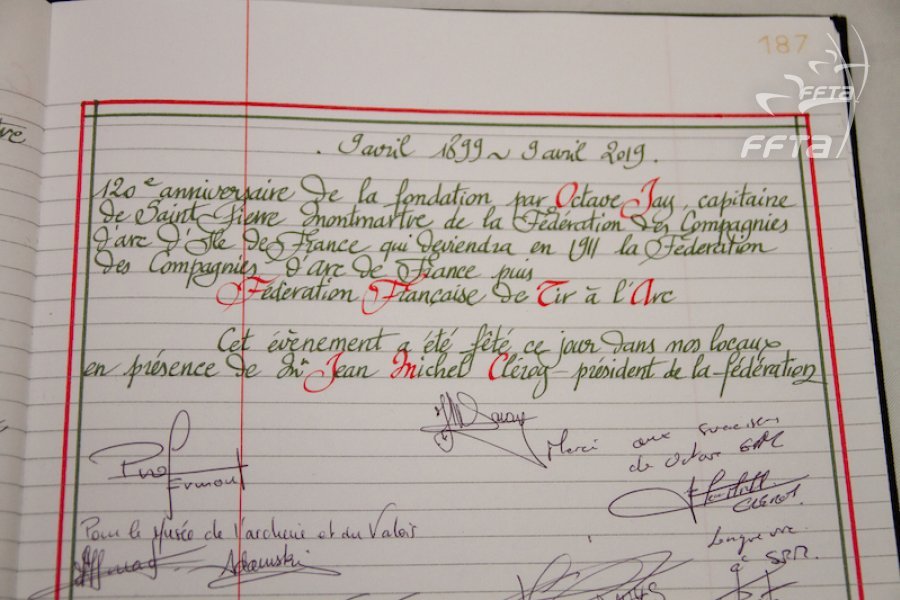 187
FFTa
FFTa
. 9 avril 1899 ~ 9 avril 2019 .
120e anniversaire de la fondation par Octave Jay, capitaine
de Saint-Pierre Montmartre de la Fédération des Compagnies
d'arc d'Ile de France qui deviendra en 1911 la Fédération
des Compagnies d'Arc de France puis
Fédération Française de Tir à l'Arc
Cet évènement a été fêté ce jour dans nos locaux
en présence de Mr Jean Michel Cléroy président de la fédération
Merci aux successeurs
de Octave
Ermont
Pour le Musée de l'archerie et du Valois
Adamski
Longue vie